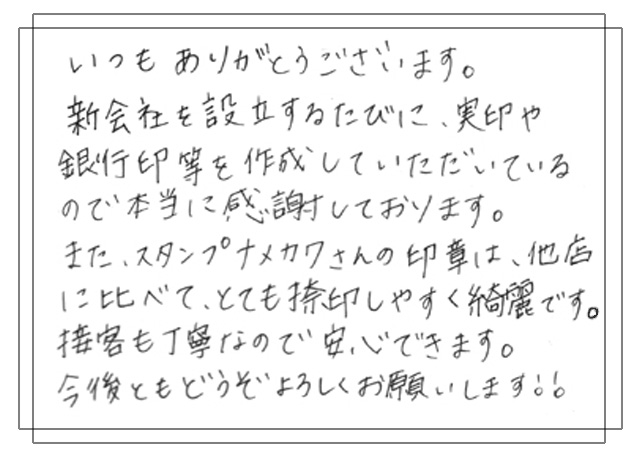 いつもありがとうございます。
新会社を設立するたびに、実印や
銀行印等を作成していただいている
ので本当に感謝しております。
また、スタンプナメカワさんの印章は、他店
に比べて、とても捺印しやすく綺麗です。
接客も丁寧なので安心できます。
今後ともどうぞよろしくお願いします!!